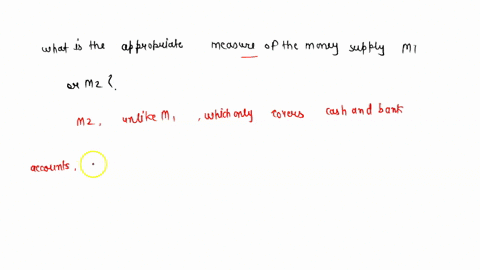 what is the appropriate measure of the money supply M1
or M2 ?.
M2, unlike M1, which only covers cash and bank
accounts,